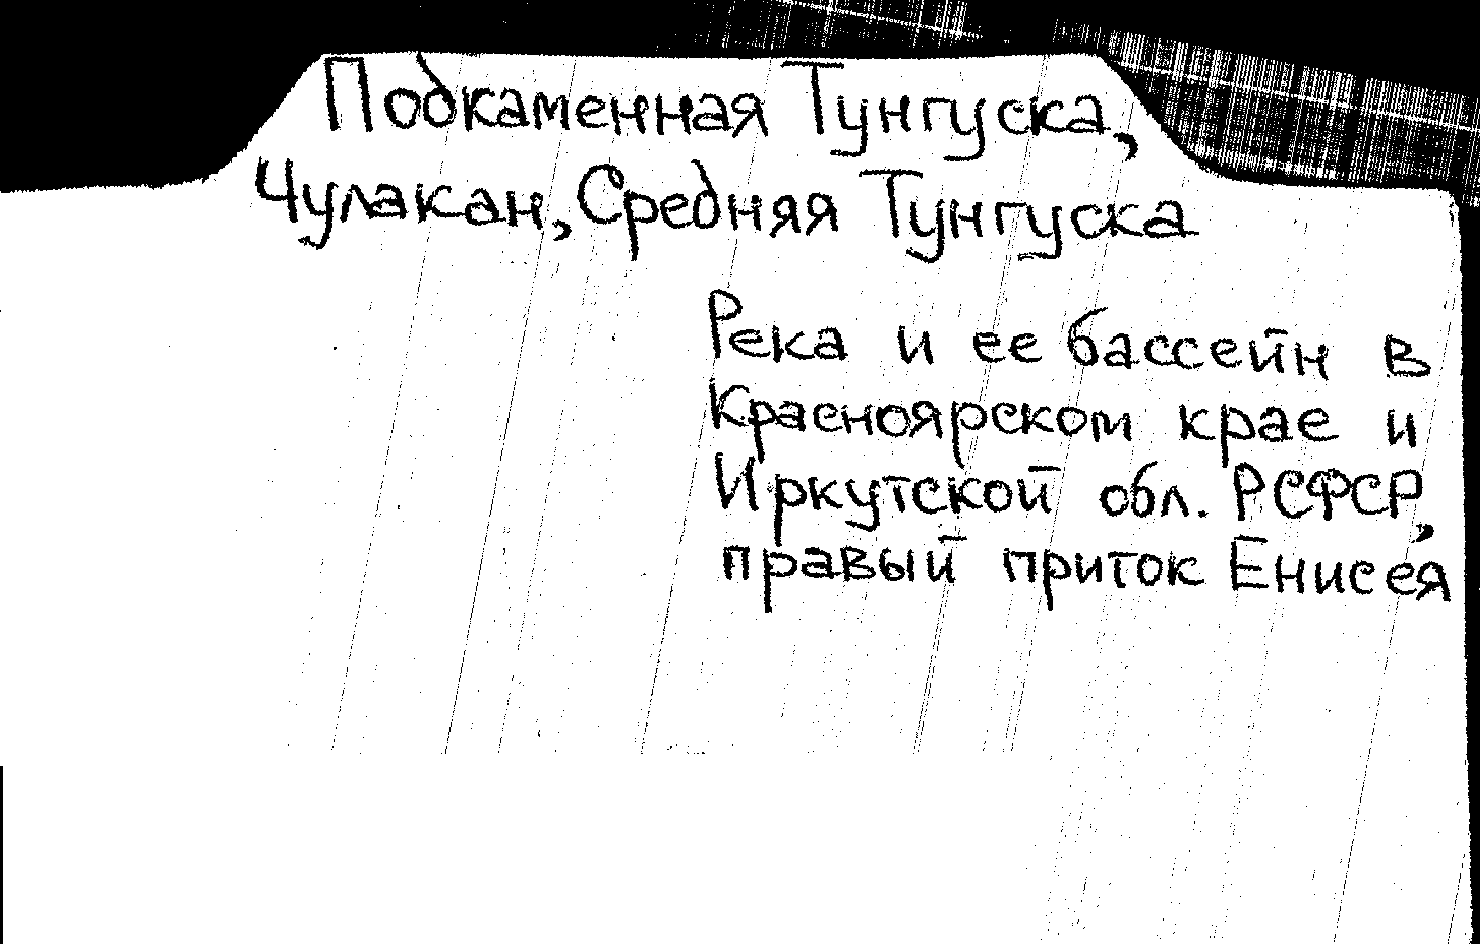 Подкаменная Тунгуска,
Чулакан, Средняя Тунгуска
Река и ее бассейн в
Красноярском крае и
Иркутской обл. РСФСР,
правый приток Енисея